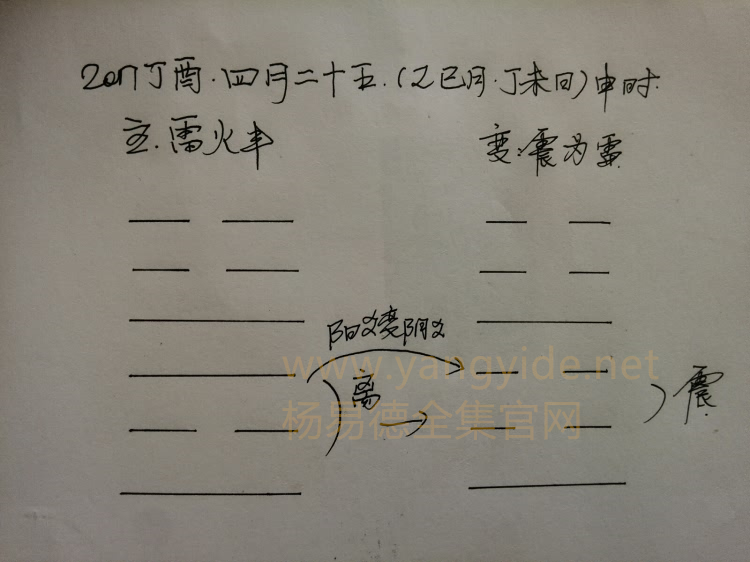 2017丁酉.四月二十五.(乙巳月.丁未日)申时.
主.雷火丰
变:震为雷
阳爻变阴爻
www.yangyide.net
离
震
杨易德全集官网